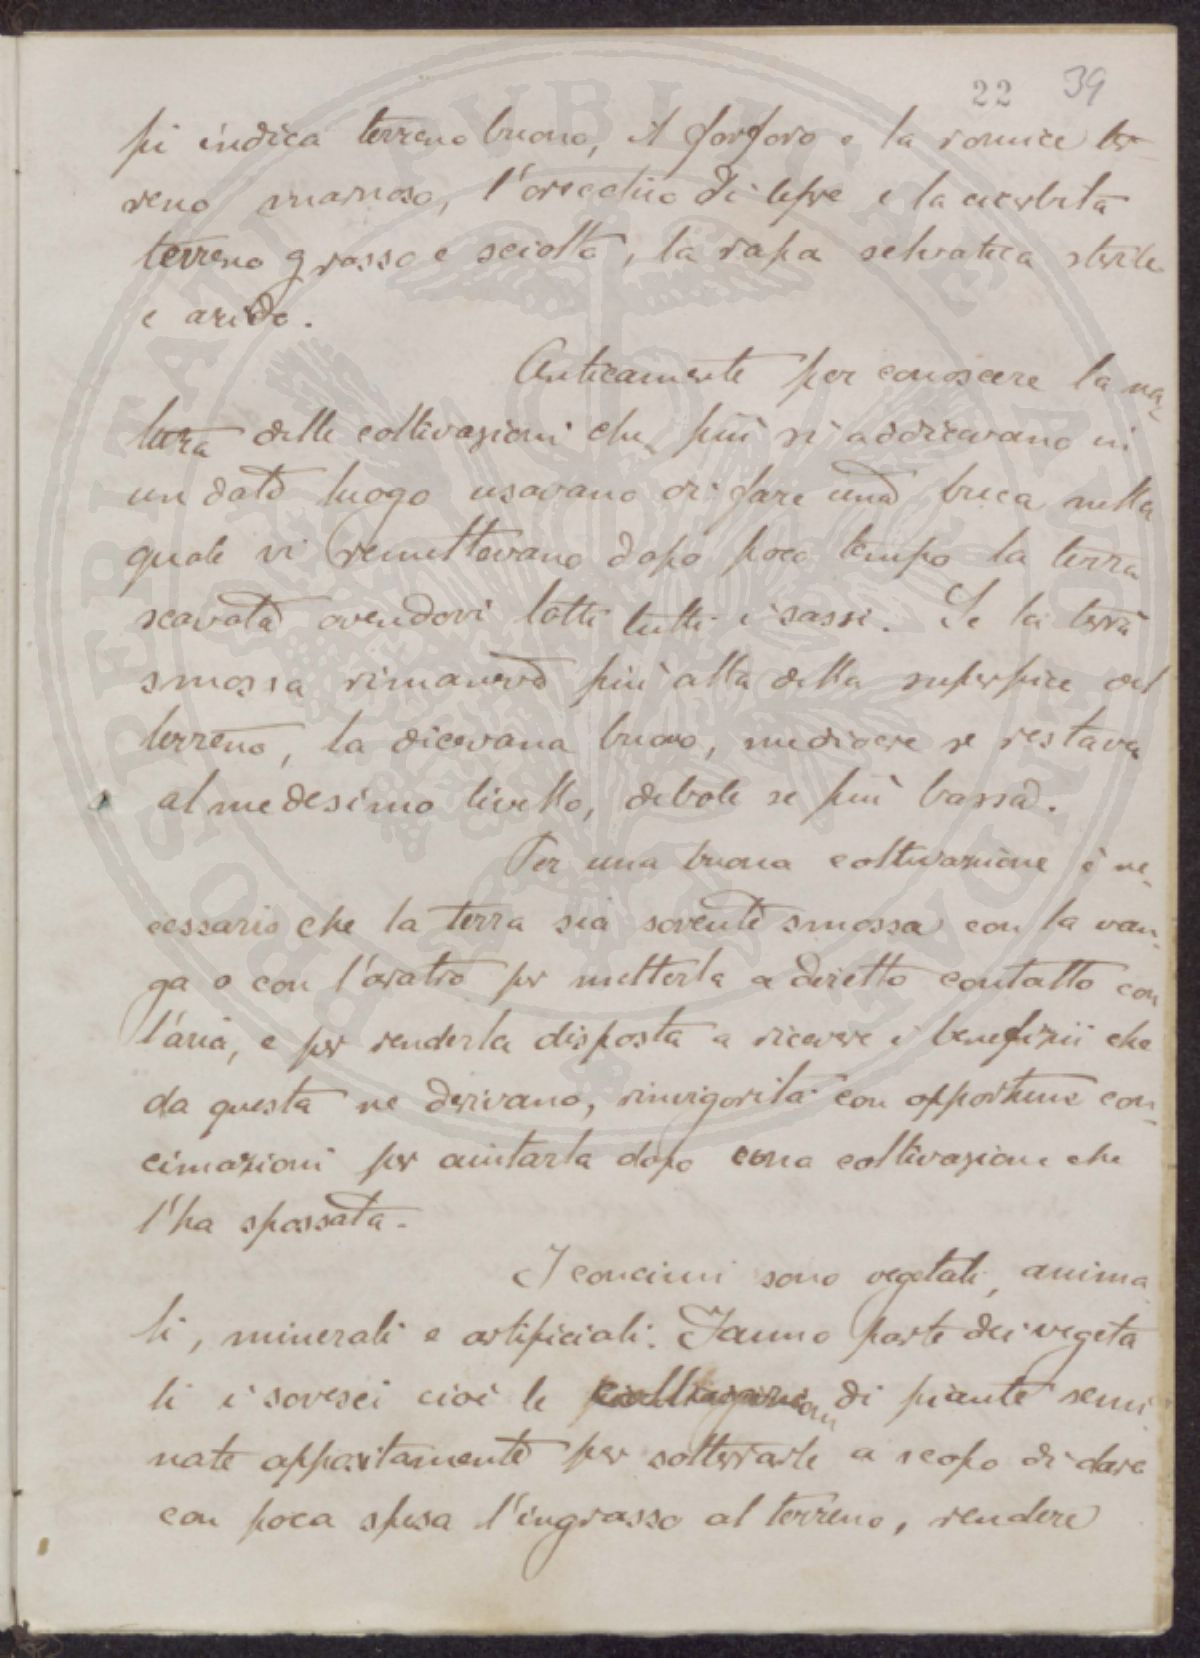 22 39
pi indica terreno buono, il forforo e la romice ter-
reno marnoso, l'orecchio di lepre e la cicerbita
terreno grosso e sciolto, la rapa selvatica sterile
e arido.
Anticamente per conoscere la na-
tura delle coltivazioni che più si addicevano in
un dato luogo usavano di fare una buca nella
quale vi remettevano dopo poco tempo la terra
scavata avendovi tolti tutti i sassi. Se la terra
smossa rimaneva più alta della superfice del
terreno, la dicevana buono, mediocre se restava
al medesimo livello, debole se più bassa.
Per una buona coltivazione è ne-
cessario che la terra sia sovente smossa con la van-
ga o con l'aratro per metterla a diretto contatto con
l'aria, e per renderla disposta a ricevere i benefizii che
da questa ne derivano, rinvigorita con opportune con-
cimazioni per aiutarla dopo una coltivazione che
l'ha spossata.
I concimi sono vegetali, anima
li, minerali e artificiali. Fanno parte dei vegeta
li i sovesci cioè le di piante semi
nate appositamente per sotterrarle a scopo di dare
con poca spesa l'ingrasso al terreno, rendere
PROSPERITATI PVBLICAE AVGENDAE